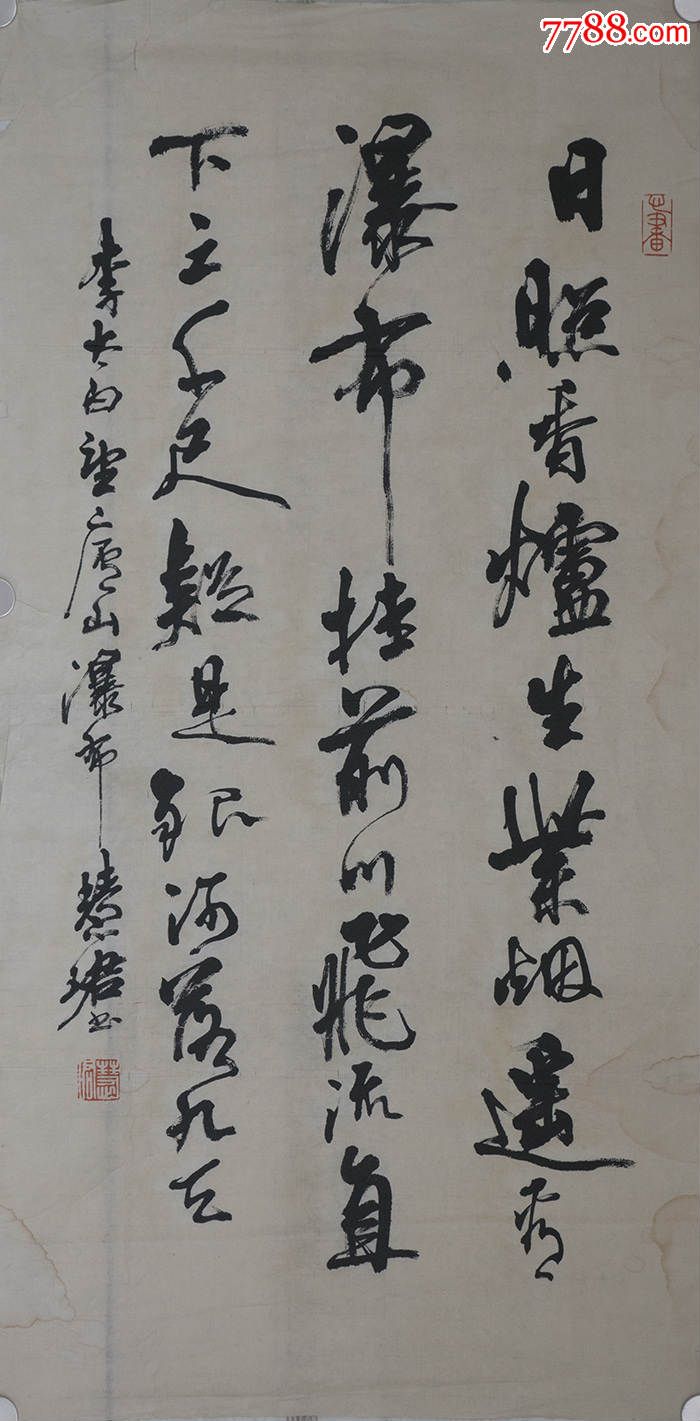 7788.com
日照香爐生紫烟遥看
瀑布挂前川飛流直
下三千尺疑是銀河落九天
李太白望廬山瀑布慧珺書